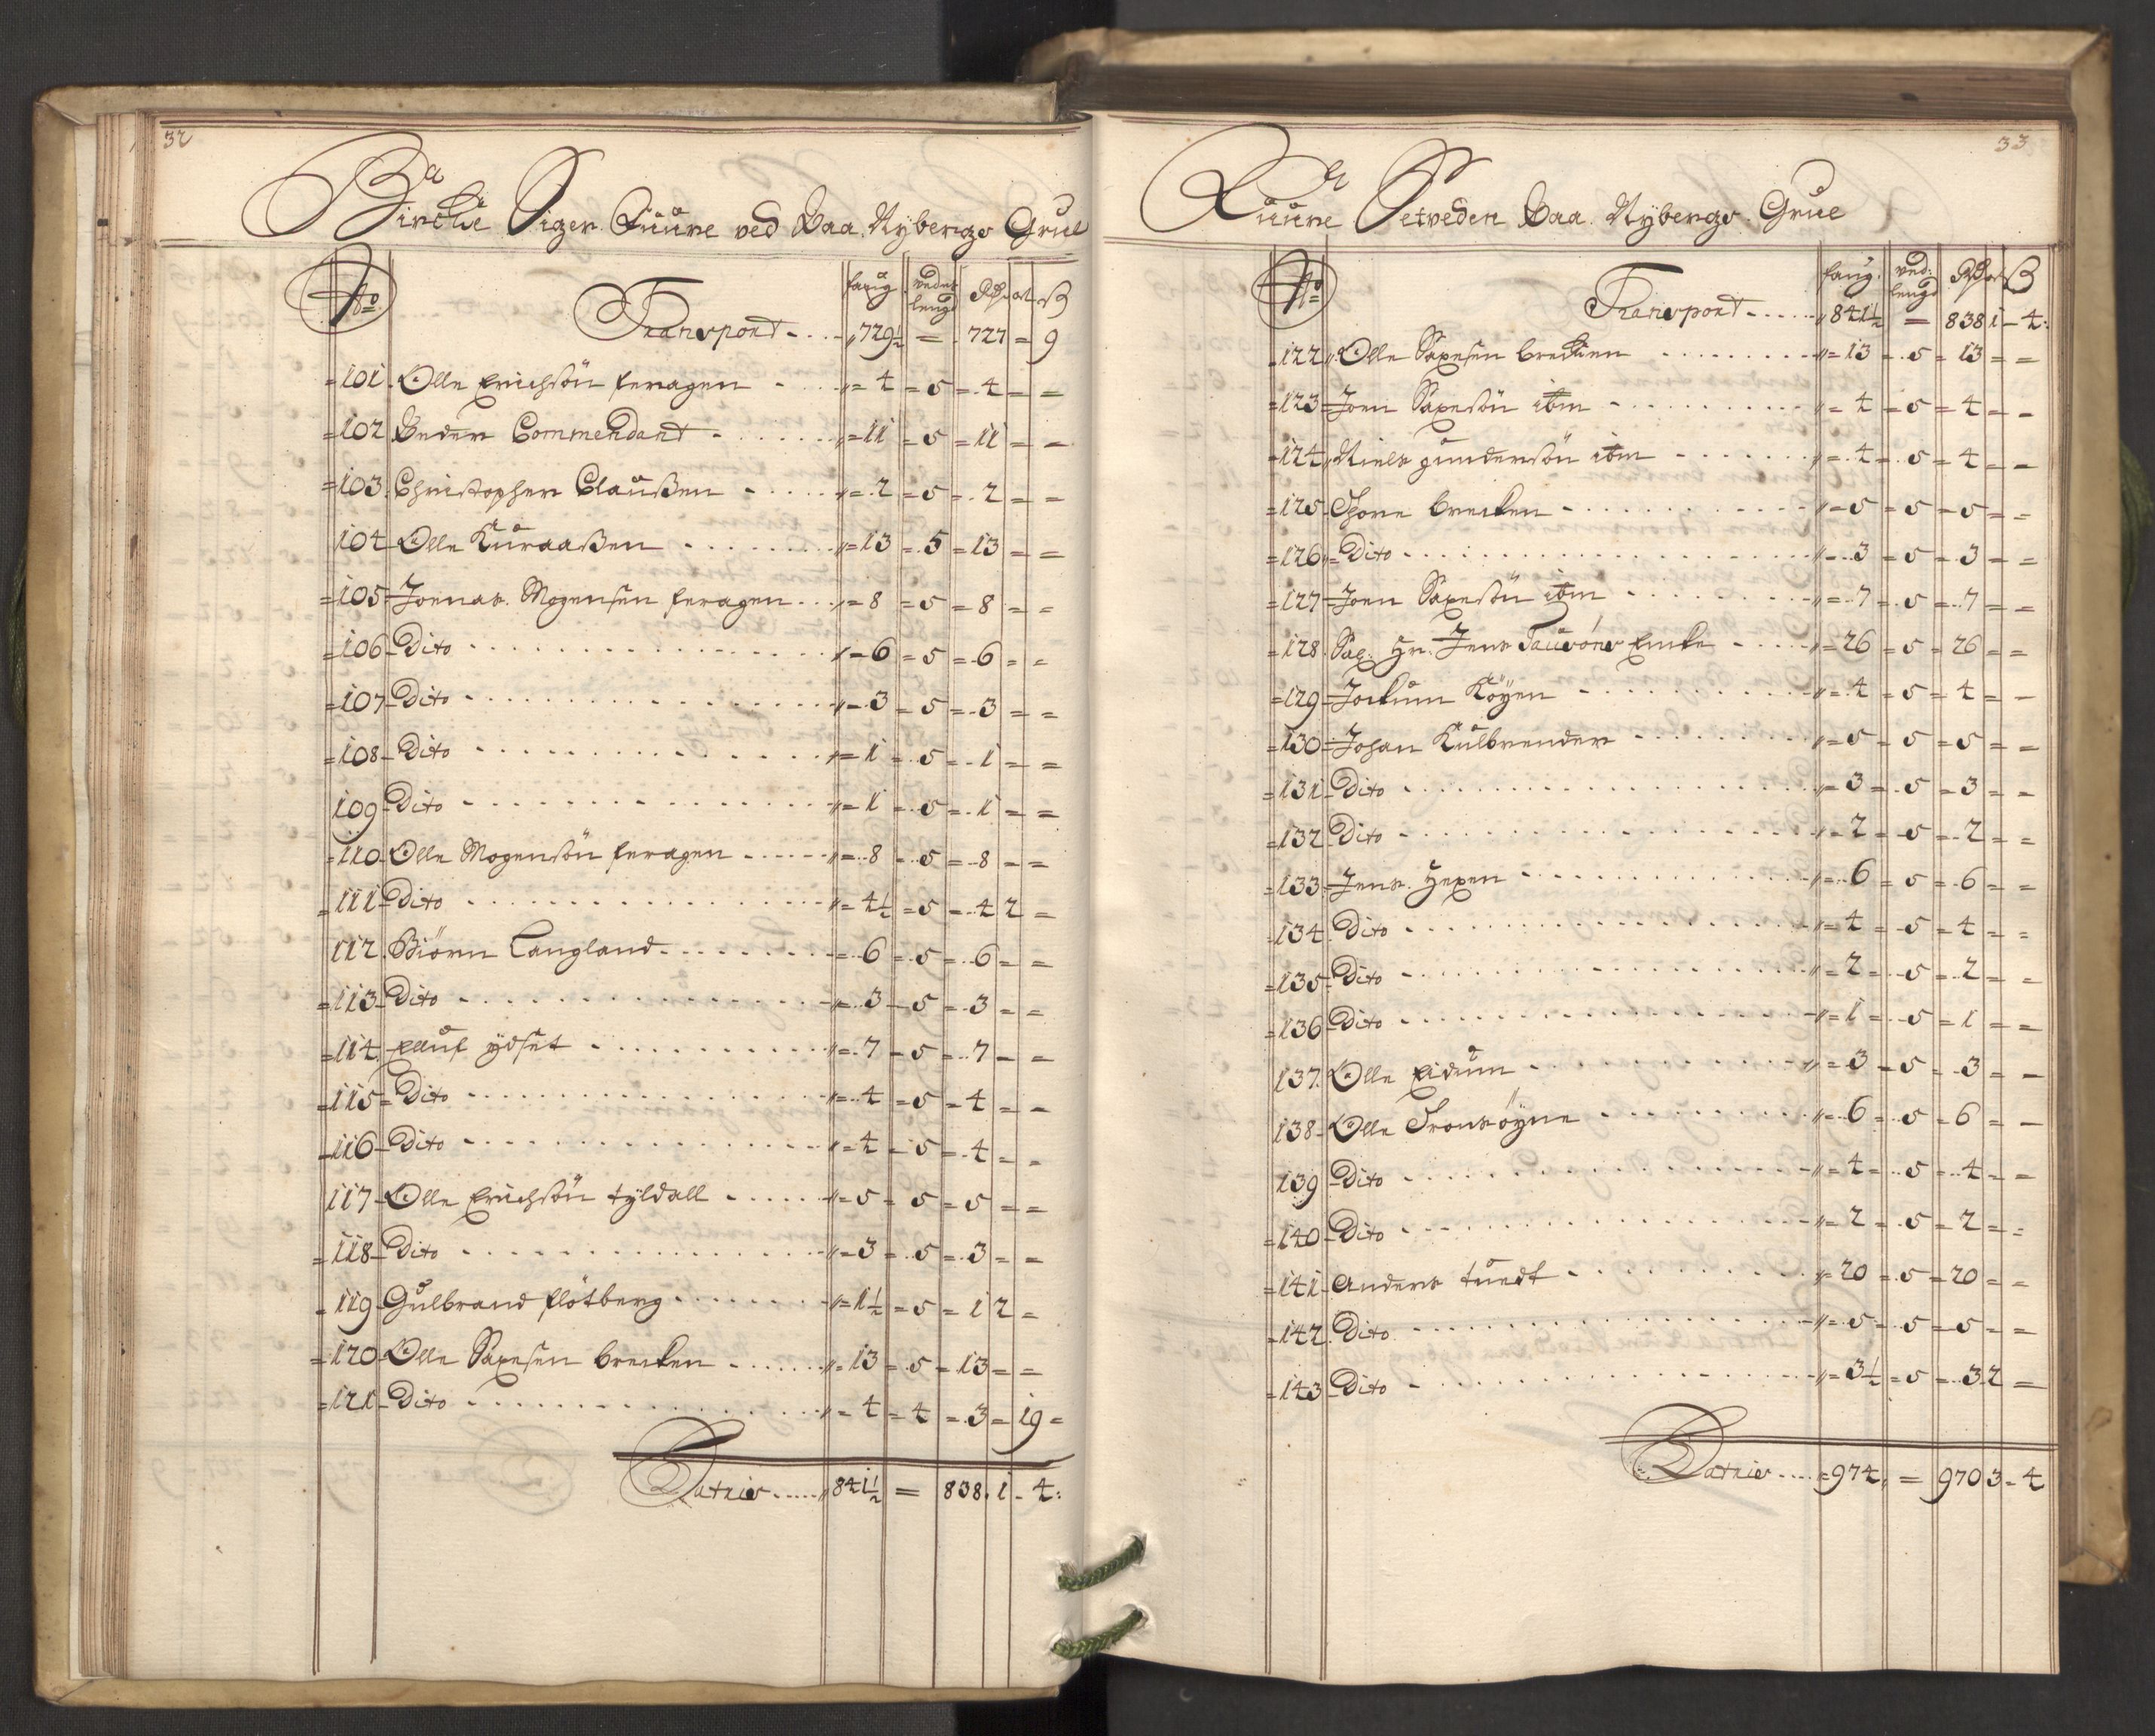 32
Bircke Siger Fuure ved Paa Nÿbergs Grue
No faug vedes lengd Rdr ort ß
Transport 729½ = 727 = 9
101 Olle Erichsön feragen 4 5 4
102 Peder Commendant 11 5 11
103 Christopher Claußen 2 5 2
104 Olle Kuraaßen 13 5 13
105 Joenas Mogensen feragen 8 5 8
106 Dito 6 5 6
107 Dito 3 5 3
108 Dito 1 5 1
109 Dito 1 5 1
110 Olle Mogensön feragen 8 5 8
111 Dito 4½ 5 4 2
112 Biörn Langland 6 5 6
113 Dito 3 5 3
114 Elluf ÿdset 7 5 7
115 Dito 4 5 4
116 Dito 4 5 4
117 Olle Erichsön tÿldall 5 5 5
118 Dito 3 5 3
119 Gulbrand flötberg 1½ 5 1 2
120 Olle Saxesen brecken 13 5 13
121 Dito 4 4 3 19
Latris 841½ = 838 1 4
33
Fuure Setveden Paa Nÿbergs Grue
No faug ved lengd Rdr ort ß
Transport 841½ = 838 1 4
122 Olle Saxesen brecken 13 5 13
123 Joen Saxesön ibm 4 5 4
124 Niels gundersön ibm 4 5 4
125 Thore brecken 5 5 5
126 Dito 3 5 3
127 Joen Saxesön ibm 7 5 7
128 Sal. Hr. Jens Tausöns Encke 26 5 26
129 Jockum Köÿen 4 5 4
130 Johan Kulbrender 5 5 5
131 Dito 3 5 3
132 Dito 2 5 2
133 Jens Hexen 6 5 6
134 Dito 4 5 4
135 Dito 2 5 2
136 Dito 1 5 1
137 Olle Eidum 3 5 3
138 Olle Tronsöÿne 6 5 6
139 Dito 4 5 4
140 Dito 2 5 2
141 Anders tuedt 20 5 20
142 Dito 5 5 5
143 Dito 3½ 5 3 2
Latris 974 = 970 3 4